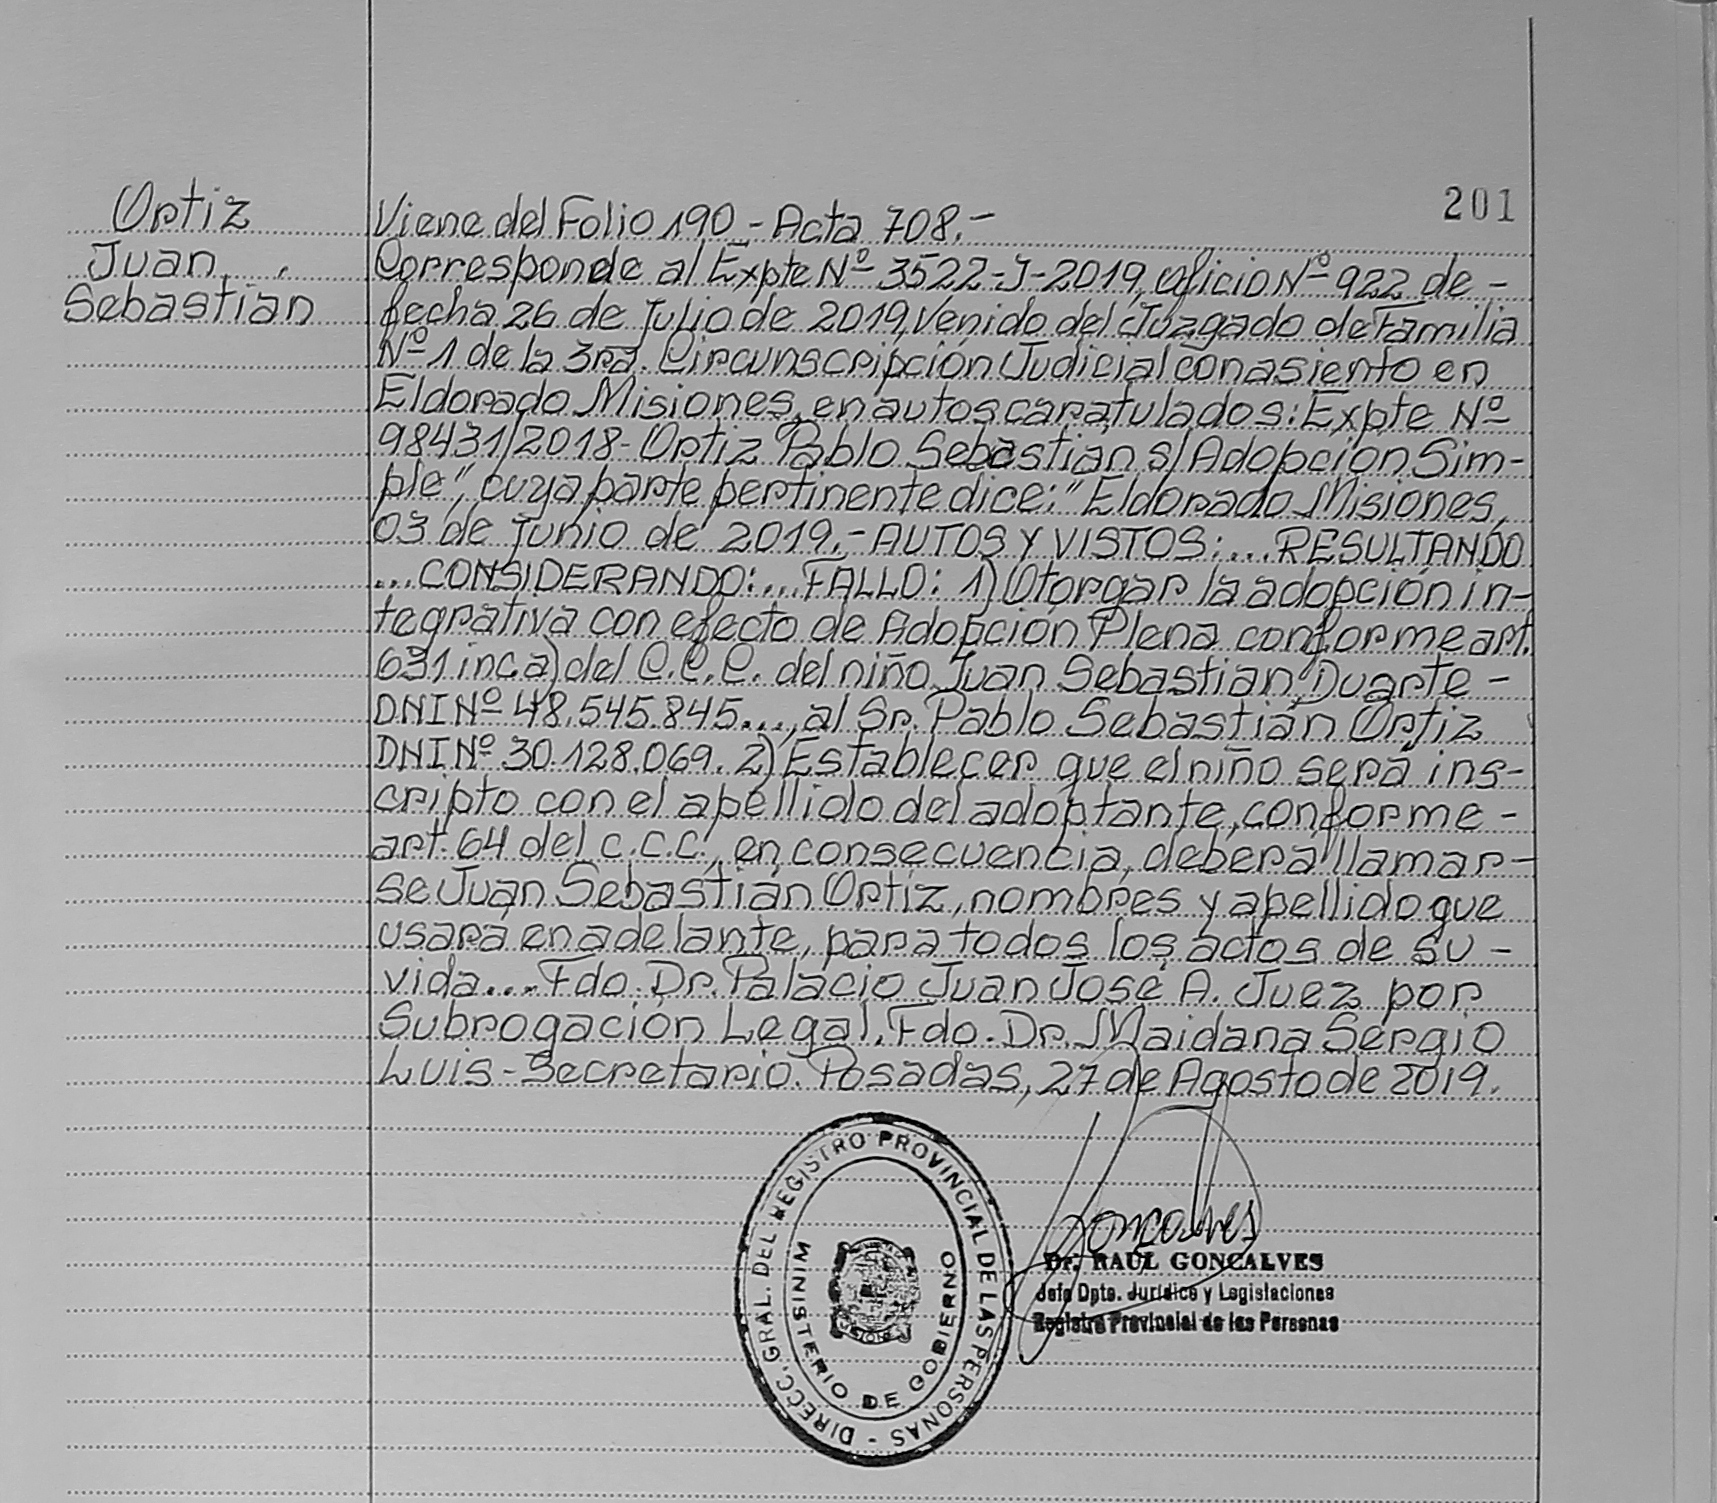 201
Ortiz
Juan
Sebastián
Viene del Folio 190 - Acta 708.-
Corresponde al Expte Nº 3522-J-2019, oficio Nº 922 de -
fecha 26 de Julio de 2019, Venido del Juzgado de Familia
Nº 1 de la 3ra. Circunscripción Judicial con asiento en
Eldorado Misiones, en autos caratulados: Expte Nº
98431/2018- Ortiz Pablo Sebastián s/ Adopción Sim-
ple", cuya parte pertinente dice: "Eldorado Misiones,
03 de Junio de 2019.- AUTOS Y VISTOS:... RESULTANDO
...CONSIDERANDO:...FALLO: 1) Otorgar la adopción in-
tegrativa con efecto de Adopción Plena conforme art.
631 inc a) del C.C.C. del niño Juan Sebastian Duarte -
DNI Nº 48.545.845..., al Sr. Pablo Sebastián Ortiz
DNI Nº 30.128.069. 2) Establecer que el niño será ins-
cripto con el apellido del adoptante, conforme -
art. 64 del C.C.C., en consecuencia, deberá llamar-
se Juan Sebastián Ortiz, nombres y apellido que
usará en adelante, para todos los actos de su -
vida... Fdo. Dr. Palacio Juan José A. Juez por
Subrogación Legal. Fdo. Dr. Maidana Sergio
Luis - Secretario. Posadas, 27 de Agosto de 2019.
DIRECC. GRAL. DEL REGISTRO PROVINCIAL DE LAS PERSONAS -
MINISTERIO DE GOBIERNO
Goncalves
Dr. RAUL GONCALVES
Jefe Dpto. Jurídico y Legislaciones
Registro Provincial de las Personas